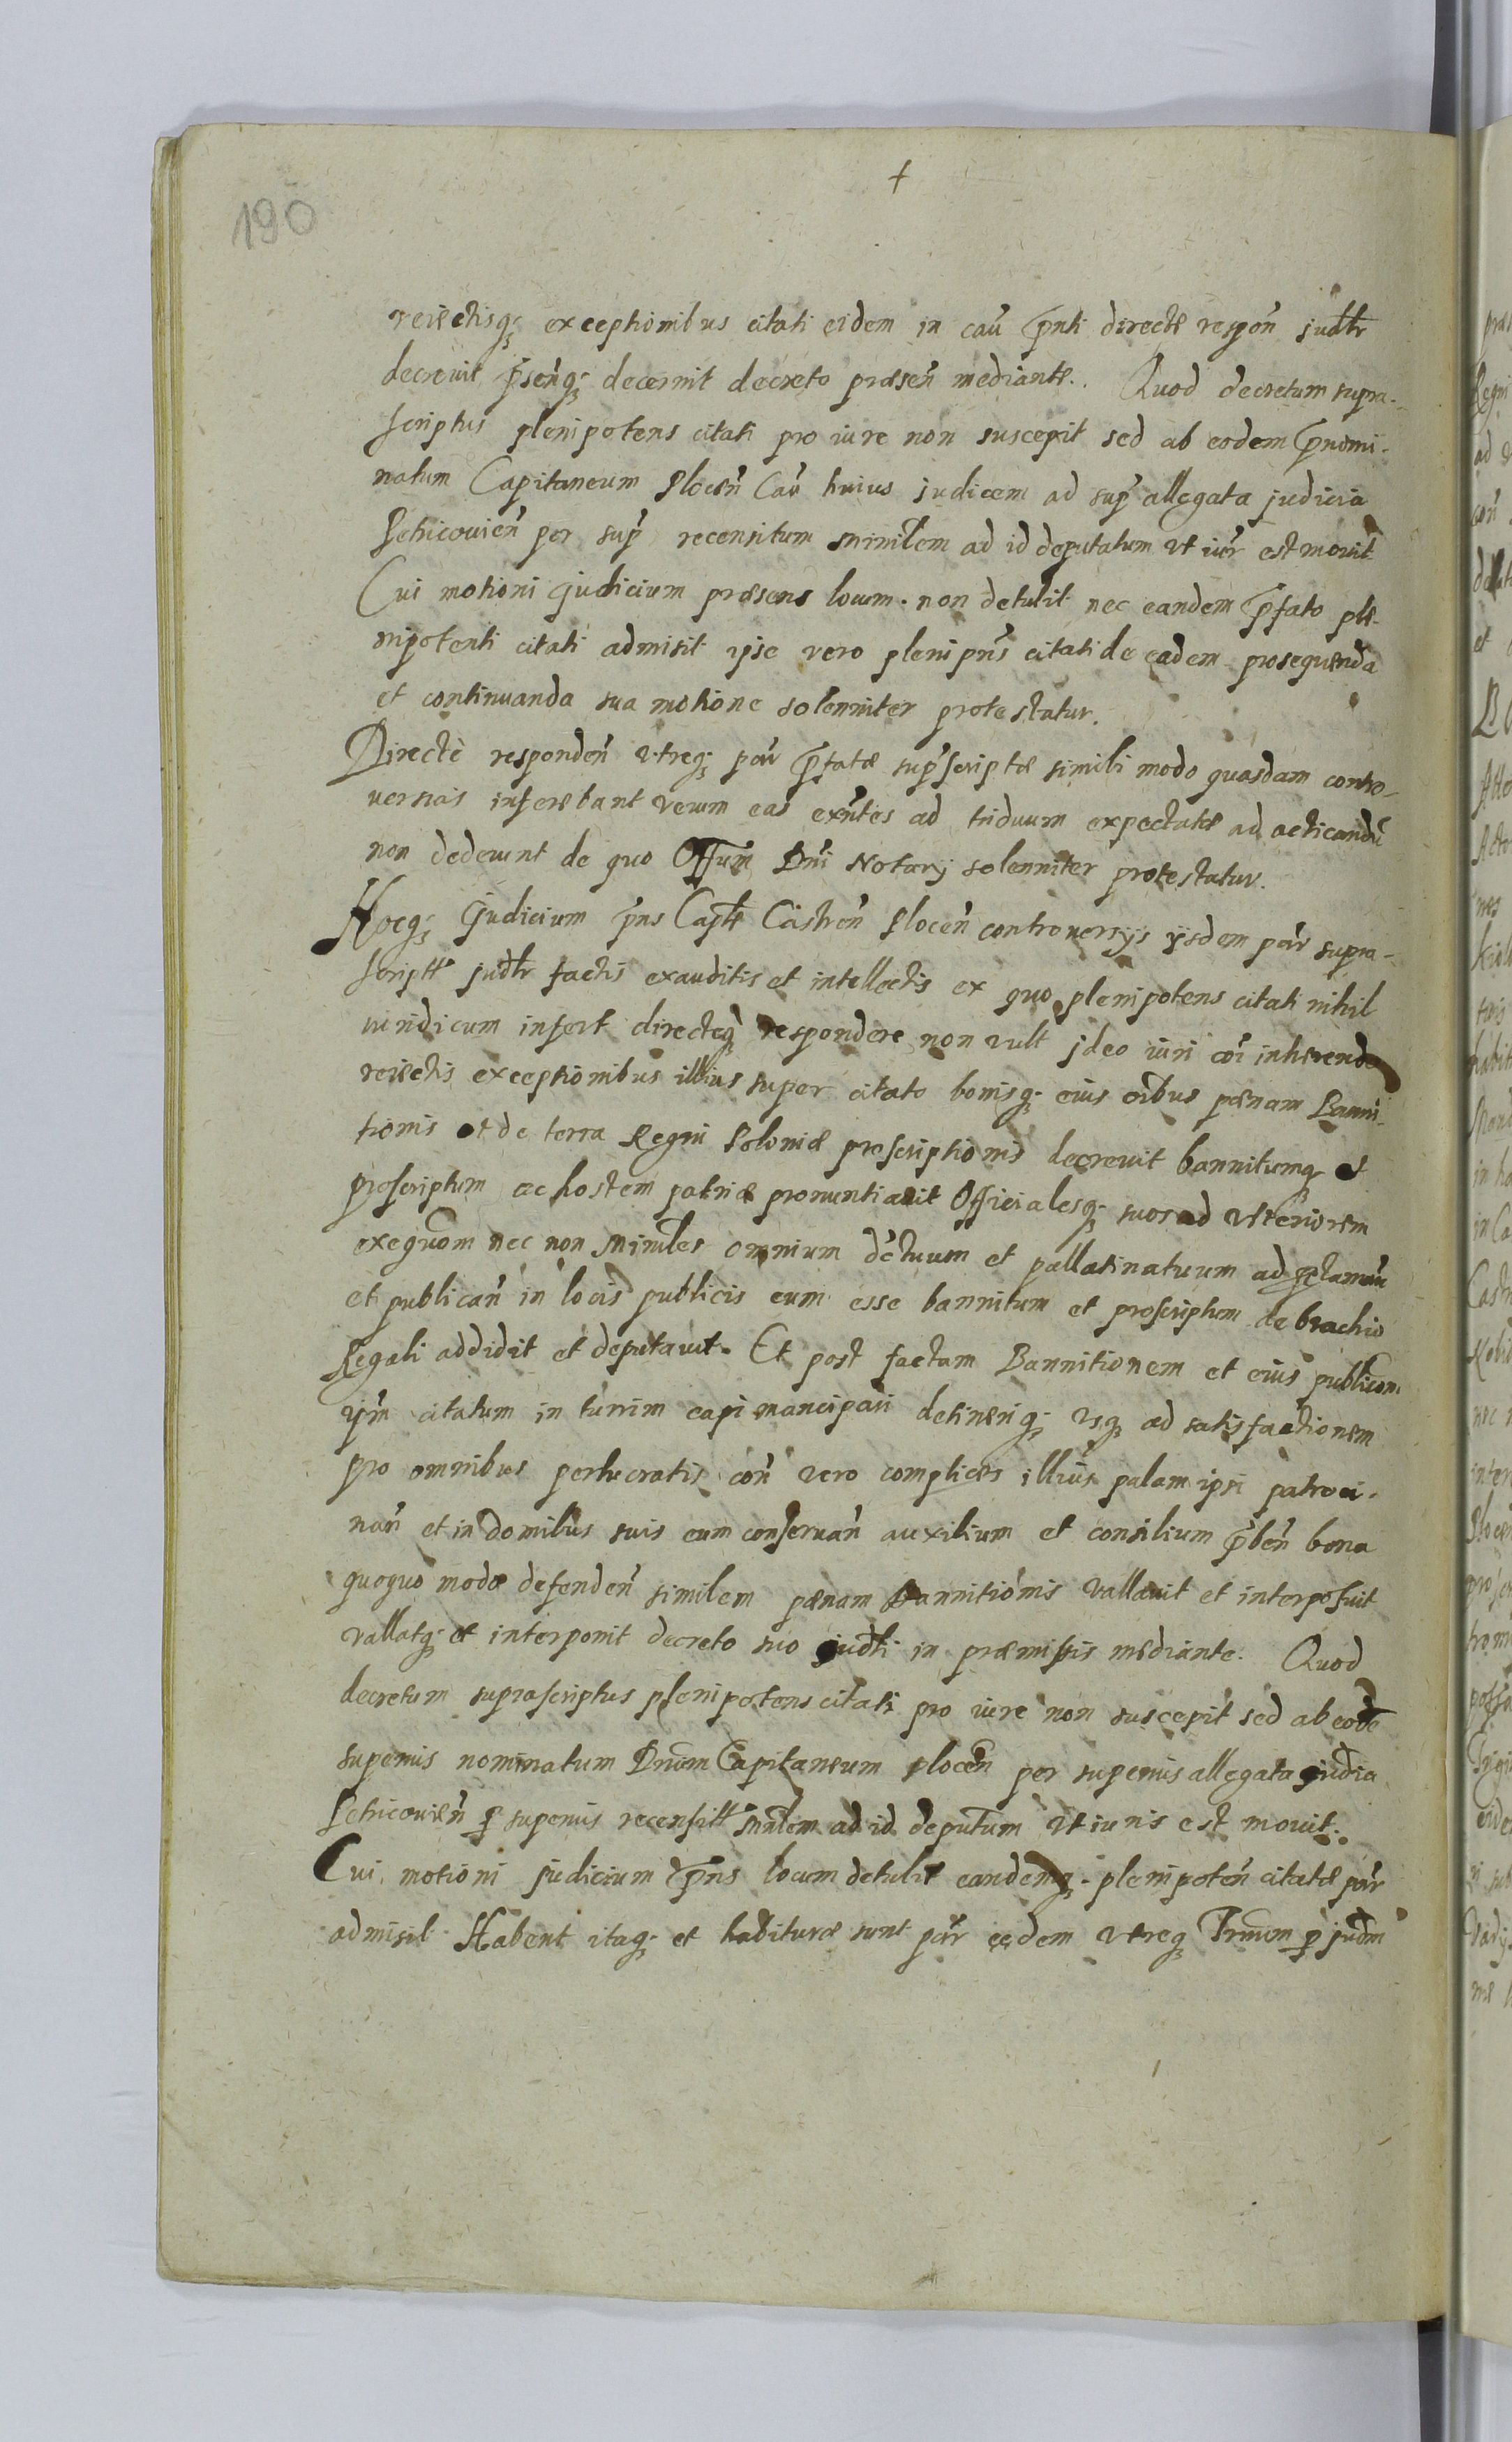 190
+
reiectisq; exceptionibus citati eidem in cau̅ p̅nti directe respon̅ judlr
decrevit p̅senq; decernit decreto præsen̅ mediante. Quod decretum supra-
scriptus plenipotens citati pro iure non suscepit sed ab eodem p̅nomi-
natum Capitaneum Plocen̅ Cau̅ huius judicem ad sup̅ allegata judicia
Petricovien̅ per sup̅ recensitum Minirlem ad id deputatum vt iur̅ est movit
Cui motioni judicium præsens locum non detulit nec eandem p̅fato ple-
nipotenti citati admisit ipse vero plenip̅ns citati de eadem prosequenda
et continuanda sua motione solenniter protestatur.
Directè responden̅ vtreq; par̅ p̅fatæ sup̅scriptæ simili modo quasdam contro-
versias inferebant verum eas exn̅tes ad triduum expectatæ ad acticandu̅
non dederunt de quo Offum Dn̅i Notarij solenniter protestatur.
Hocq; judicium p̅ns Captle Castren̅ Plocen̅ controversijs ijsdem par̅ supra-
scriptt judlr factis exauditis et intellectis ex quo plenipotens citati nihil
iuridicum infert directeq; respondere non vult jdeo iuri coi̅ inherendo
reiectis exceptionibus illius super citato bonisq; eius oi̅bus pænam Banni-
tionis et de terra Regni Poloniæ proscriptionis decrevit bannitumq; et
proscriptum ac hostem patriæ pronuntiavit Officialesq; suos ad vlteriorem
exequo̅m nec non Minirles omnium d̅ctuum et pallatinatuum ad p̅claman̅
et publican̅ in locis publicis eum esse bannitum et proscriptum de brachio
Regali addidit et deputavit. Et post factam Bannitionem et eius publico̅m
ip̅m citatum in turrim capi mancipari detineriq; vsq; ad satisfactionem
pro omnibus perlucratis con̅ vero complices illius palam ipsi patroci-
nan̅ et in domibus suis eum conservan̅ auxilium et consilium p̅ben̅ bona
quoquo modo defenden̅ similem pænam Bannitionis vallavit et interposuit
vallatq; et interponit decreto suo judli in præmissis mediante. Quod
decretum suprascriptus plenipotens citati pro iure non suscepit sed ab eode̅
superius nominatum Dnum Capitaneum Plocen̅ per superius allegata judia
Petricovien̅ p̱ superius recensitt Minlem ad id deputum vt iuris est movit.
Cui motioni judicium p̅ns locum detulit eandemq; plenipoten̅ citatæ par̅
admisit Habent itaq; et habituræ sunt par̅ eædem vtreq; Trnum p̱ judm